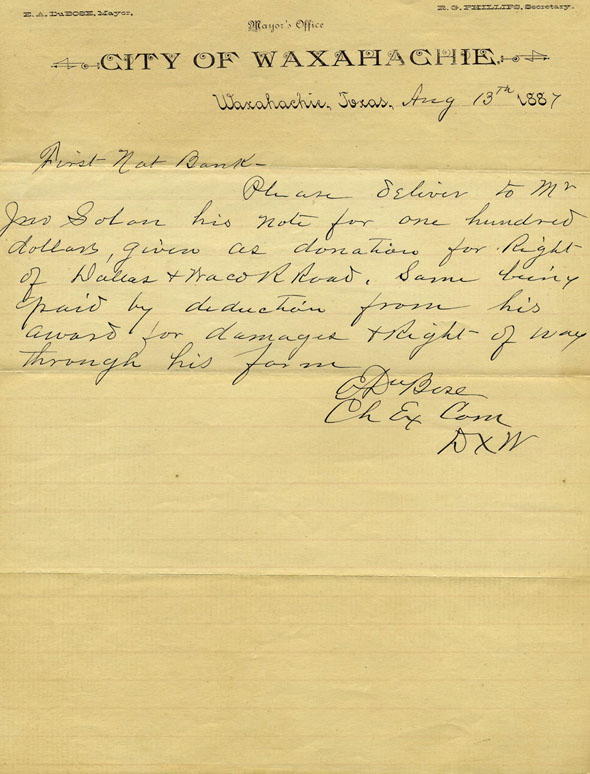 E. A. DuBOSE, Mayor.
R. G. PHILLIPS, Secretary.
Mayor's Office
CITY OF WAXAHACHIE.
Waxahachie, Texas, Aug 13th 1887
First Nat Bank-
Please deliver to Mr
Jno Solon his note for one hundred
dollars, given as donation for Right
of Dallas & Waco R Road. Same being
paid by deduction from his
award for damages & Right of way
through his farm
E DuBose
Ch Ex Com
D & W